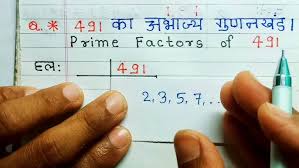 Q.* 491 का अभाज्य गुणनखंड।
Prime Factors of 491
हल:
491
2, 3, 5, 7, ...